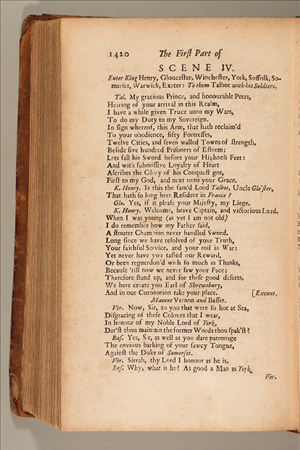 1420 The First Part of
SCENE IV.
Enter King Henry, Gloucester, Winchester, York, Suffolk, So-
merset, Warwick, Exeter: To them Talbot with his Soldiers.
Tal. My gracious Prince, and honourable Peers,
Hearing of your arrival in this Realm,
I have a while given Truce unto my Wars,
To do my Duty to my Sovereign.
In sign whereof, this Arm, that hath reclaim'd
To your obedience, fifty Fortresses,
Twelve Cities, and seven walled Towns of strength,
Beside five hundred Prisoners of Esteem;
Lets fall his Sword before your Highness Feet:
And with submissive Loyalty of Heart
Ascribes the Glory of his Conquest got,
First to my God, and next unto your Grace.
K. Henry. Is this the fam'd Lord Talbot, Uncle Glo'ster,
That hath so long been Resident in France?
Glo. Yes, if it please your Majesty, my Liege.
K. Henry. Welcome, brave Captain, and victorious Lord.
When I was young (as yet I am not old)
I do remember how my Father said,
A stouter Champion never handled Sword.
Long since we have resolved of your Truth,
Your faithful Service, and your toil in War:
Yet never have you tasted our Reward,
Or been reguerdon'd with so much as Thanks,
Because 'till now we never saw your Face:
Therefore stand up, and for these good deserts,
We here create you Earl of Shrewsbury,
And in our Coronation take your place. [Exeunt.
Manent Vernon and Basset.
Ver. Now, Sir, to you that were so hot at Sea,
Disgracing of these Colours that I wear,
In honour of my Noble Lord of York,
Dar'st thou maintain the former Words thou spak'st?
Bas. Yes, Sir, as well as you dare patronage
The envious barking of your sawcy Tongue,
Against the Duke of Somerset.
Ver. Sirrah, thy Lord I honour as he is.
Bas. Why, what is he? As good a Man as York.
Ver.